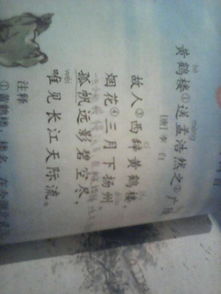 黄鹤楼①送孟浩然之②广
[唐]李白
故人③西辞黄鹤楼
烟花④三月下扬州
孤帆远影碧空尽，
唯见长江天际流。
注释
①黄鹤楼：楼名，在今湖北武